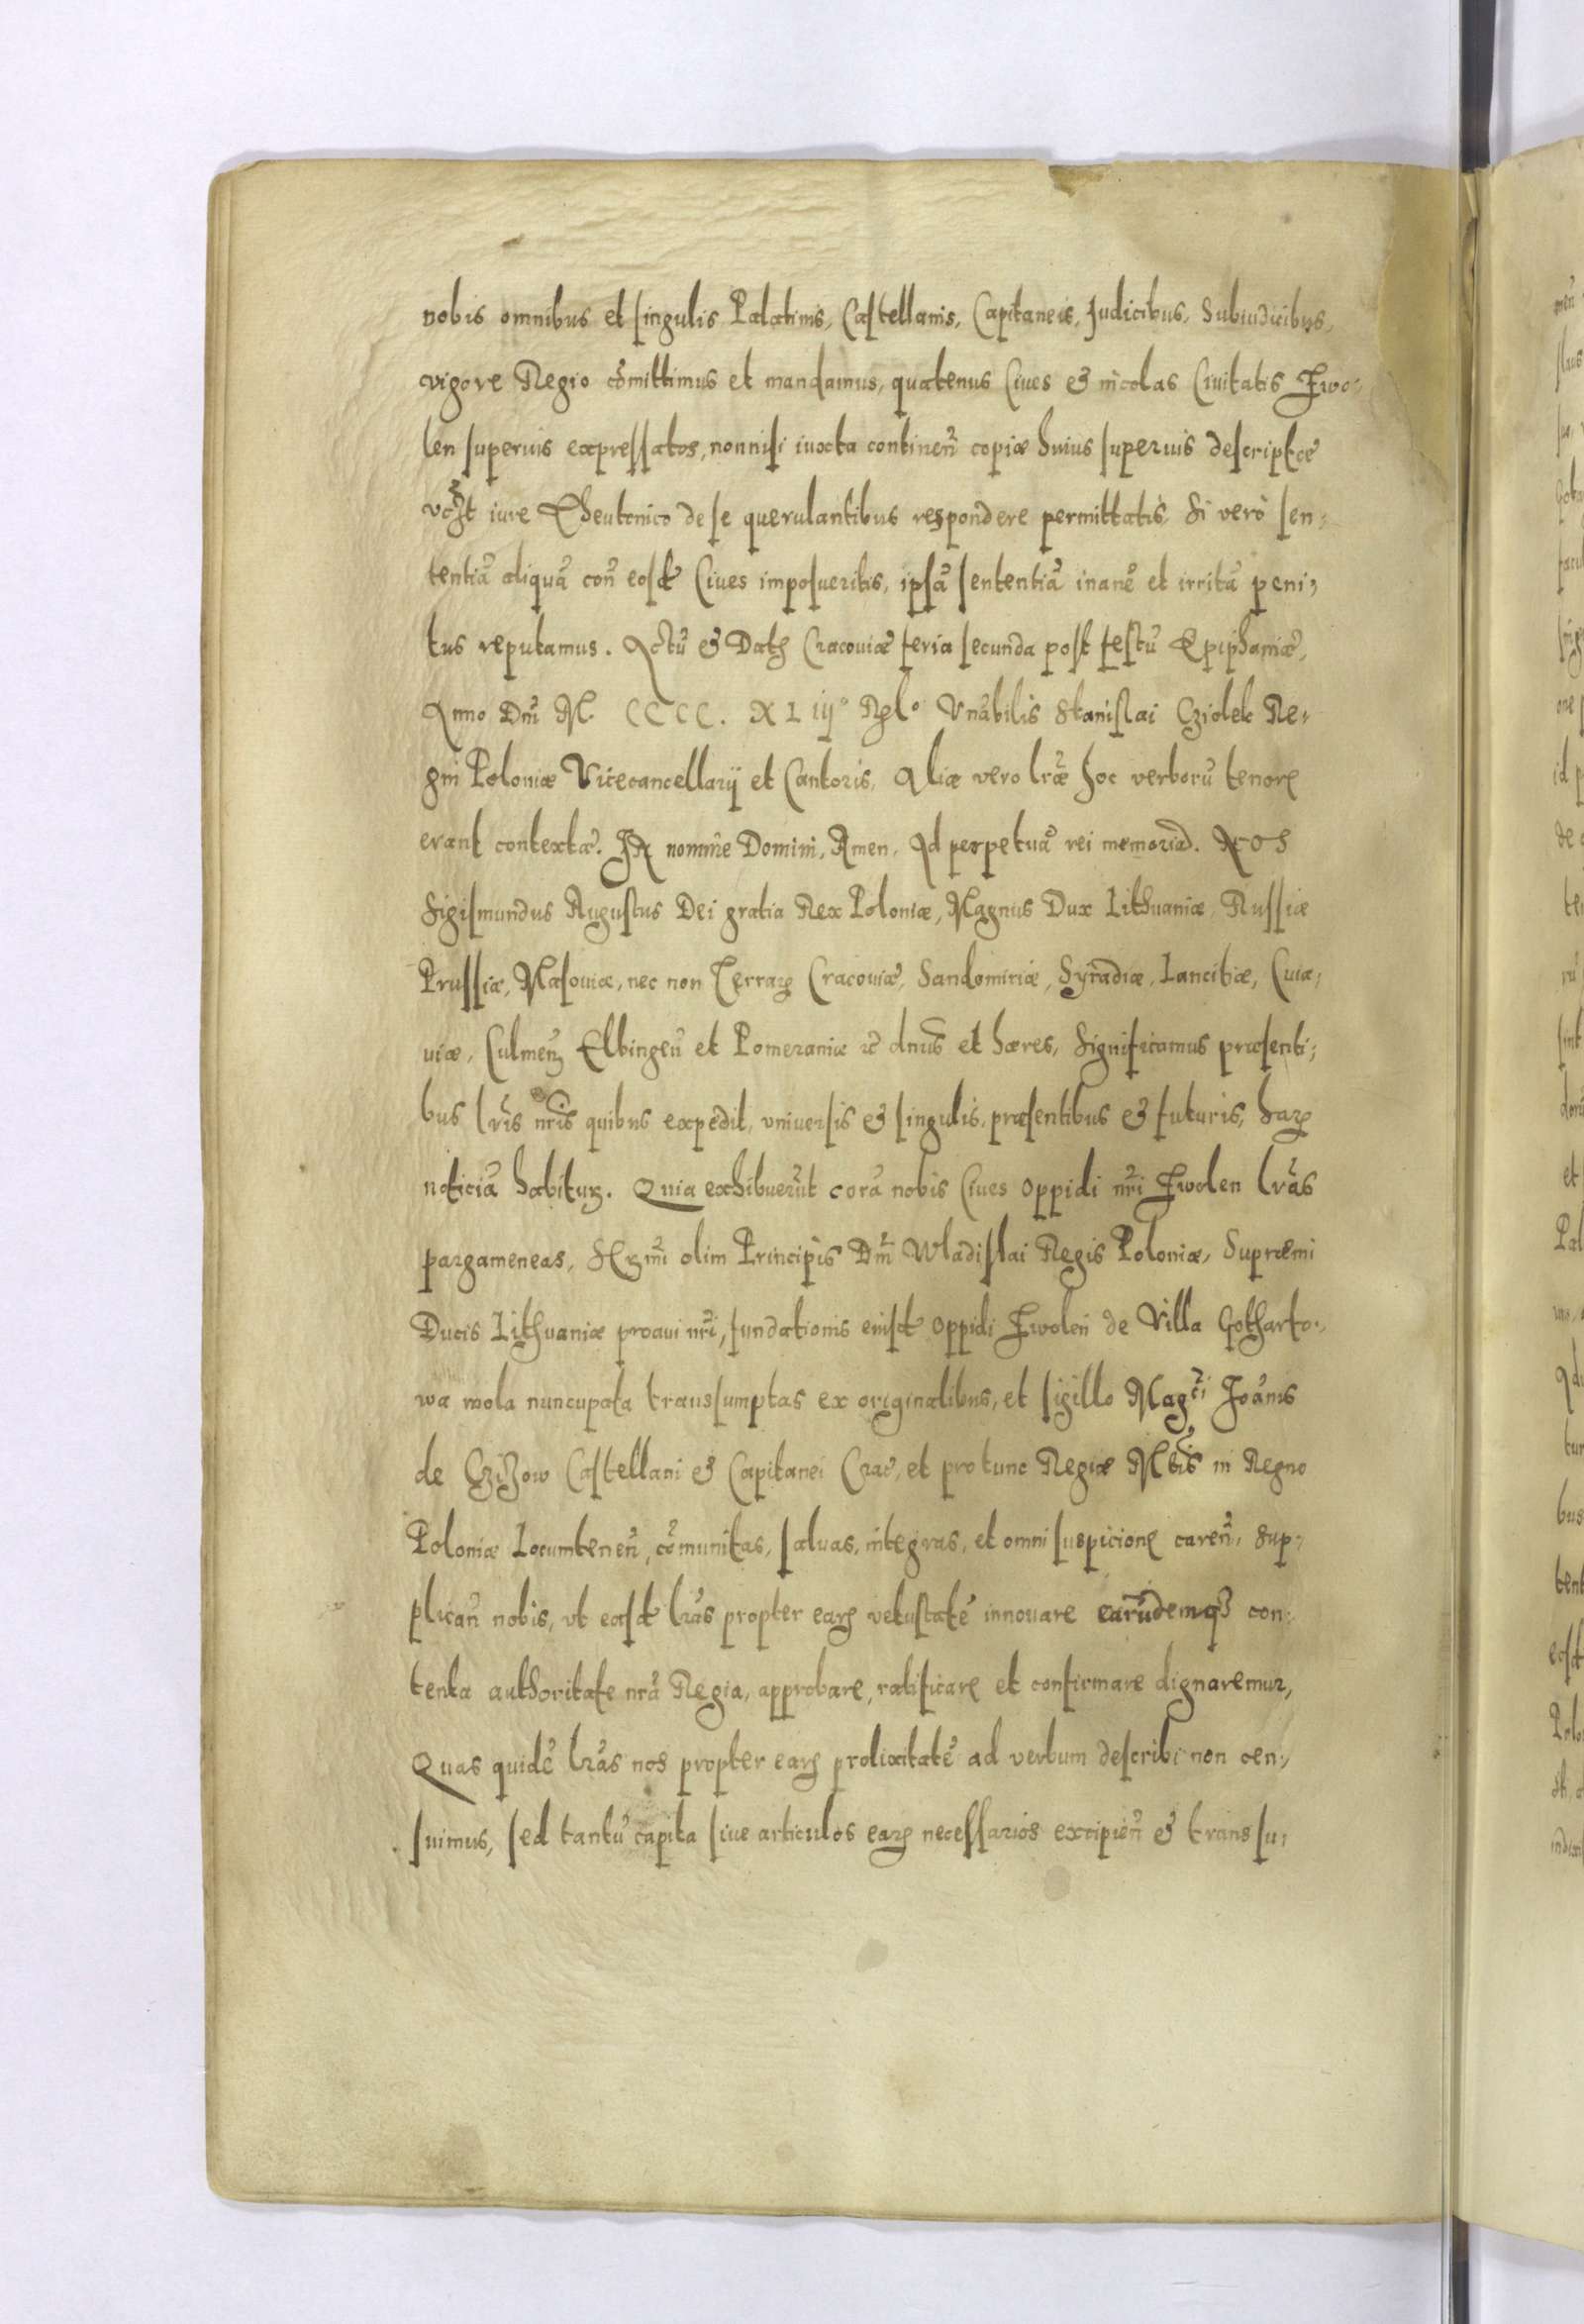 nobis omnibus et singulis Palatinis, Castellanis, Capitaneis, Judicibus, Subiudicibus,
vigore Regio cõmittimus et mandamus, quatenus Ciues & incolas Ciuitatis Zwo-
len superius expressatos, nonnisi iuxta continen̄ copiæ huius superius descriptæ
vc̃zt iure Theutonico de se querulantibus respondere permittatis, Si verò sen-
tentiã aliquã con̄ eosd̃ Ciues imposueritis, ipsã sententiã inanẽ et irritã peni-
tus reputamus. Actũ & Datꝫ Cracouiæ feria secunda post festũ Epiphaniæ,
Anno Dn̄i M. CCCC. XLiij° Rel° Vnãbilis Stanislai Cziolek Re-
gni Poloniæ Vicecancellarij et Cantoris, Aliæ vero lr̃æ hoc verborũ tenorȩ
erant contextæ. IN nomine Domini, Amen. Ad perpetuã rei memoriã. NOS
Sigismundus Augustus Dei gratia Rex Poloniæ, Magnus Dux Lithuaniæ, Russiæ
Prussiæ, Masouiæ, nec non Terrarꝫ Cracouiæ, Sandomiriæ, Syradiæ, Lancitiæ, Cuia-
uiæ, Culmenꝫ Elbingen̄ et Pomeraniæ ꝛc̃ dnus̃ et hæres, Significamus præsenti-
bus lr̃is nr̃is quibus expedit, vniuersis & singulis, præsentibus & futuris, harꝫ
noticiã habiturꝫ. Quia exhibuerũt corã nobis Ciues oppidi nr̃i Zwolen lr̃as
pargameneas, Srꝫmi olim Principis Dn̄i Wladislai Regis Poloniæ, Supræmi
Ducis Lithuaniæ proaui nr̃i, fundationis eiusd̃ oppidi Zwolen de Villa Gotharto-
wa wola nuncupata transsumptas ex originalibus, et sigillo Magci Joãnis
de Czizow Castellani & Capitanei Crac̃, et pro tunc Regiæ Mtis̃ in Regno
Poloniæ Locumtenen̄, cõmunitas, saluas, integras, et omni suspicionȩ caren̄, Sup-
plican̄ nobis, vt easd̃ lr̃as propter earꝫ vetustatẽ innouare earũdemqꝫ con-
tenta authoritate nr̃a Regia, approbare, ratificarȩ et confirmare dignaremur,
Quas quidẽ lr̃as nos propter earꝫ prolixitatẽ ad verbum describi non cen-
suimus, sed tantũ capita siue articulos earꝫ necessarios excipien̄ & transsu-